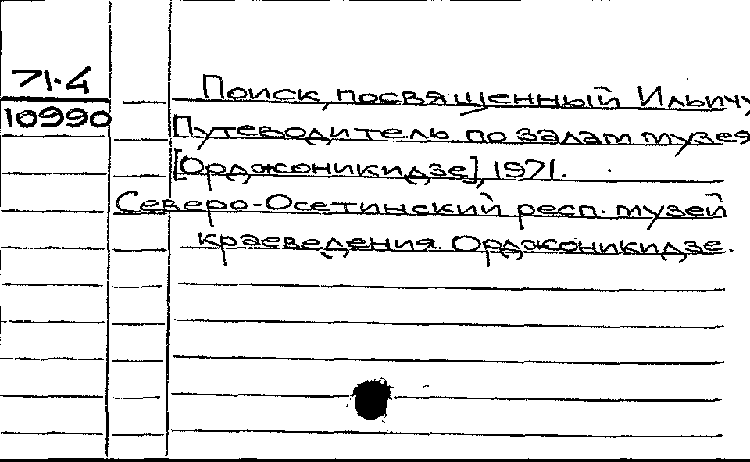 71-4
10990
Поиск, посвященный Ильичу
Путеводитель по залам музея
[Орджоникидзе], 1971.
Северо-Осетинский респ. музей
краеведения. Орджоникидзе.